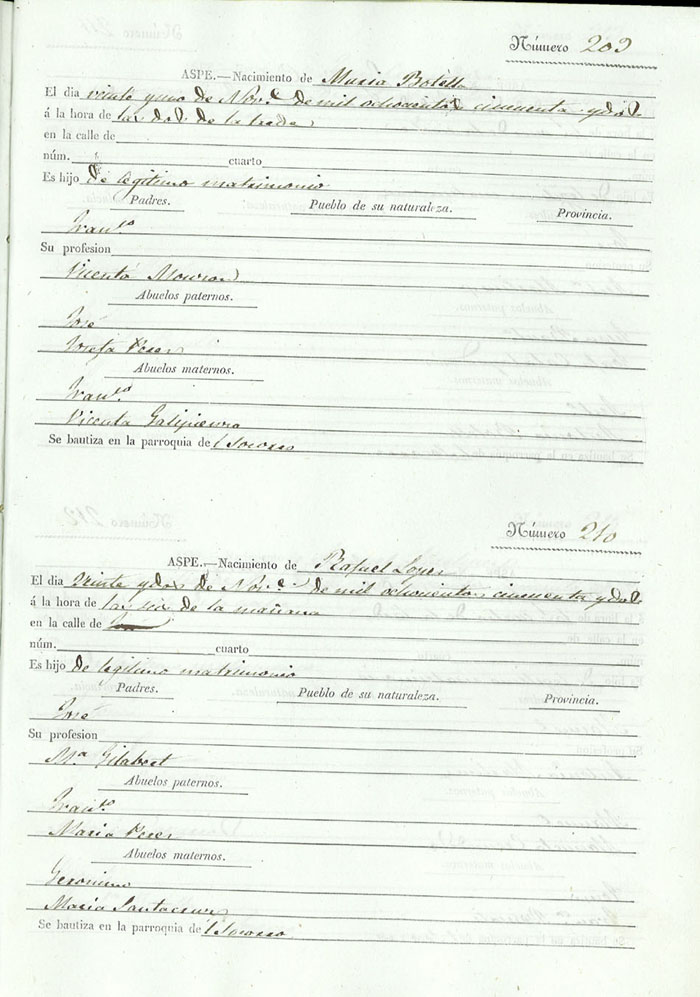 Número 209
ASPE.—Nacimiento de Maria Botella
El dia veinte y uno de Nov.e de mil ochocientos cincuenta y dos
á la hora de las dos de la tarde
en la calle de
núm. cuarto
Es hijo de legitimo matrimonio
Padres. Pueblo de su naturaleza. Provincia.
Fran.co
Su profesion
Vicenta
Abuelos paternos.
José
Josefa Perez
Abuelos maternos.
Fran.co
Vicenta Galipienso
Se bautiza en la parroquia del Socorro
Número 210
ASPE.—Nacimiento de Rafael Lopez
El dia veinte y dos de Nov.e de mil ochocientos cincuenta y dos
á la hora de las seis de la mañana
en la calle de
núm. cuarto
Es hijo de legitimo matrimonio
Padres. Pueblo de su naturaleza. Provincia.
José
Su profesion
M.a Gilabert
Abuelos paternos.
Fran.co
Maria Perez
Abuelos maternos.
Geronimo
Maria Santacruz
Se bautiza en la parroquia del Socorro